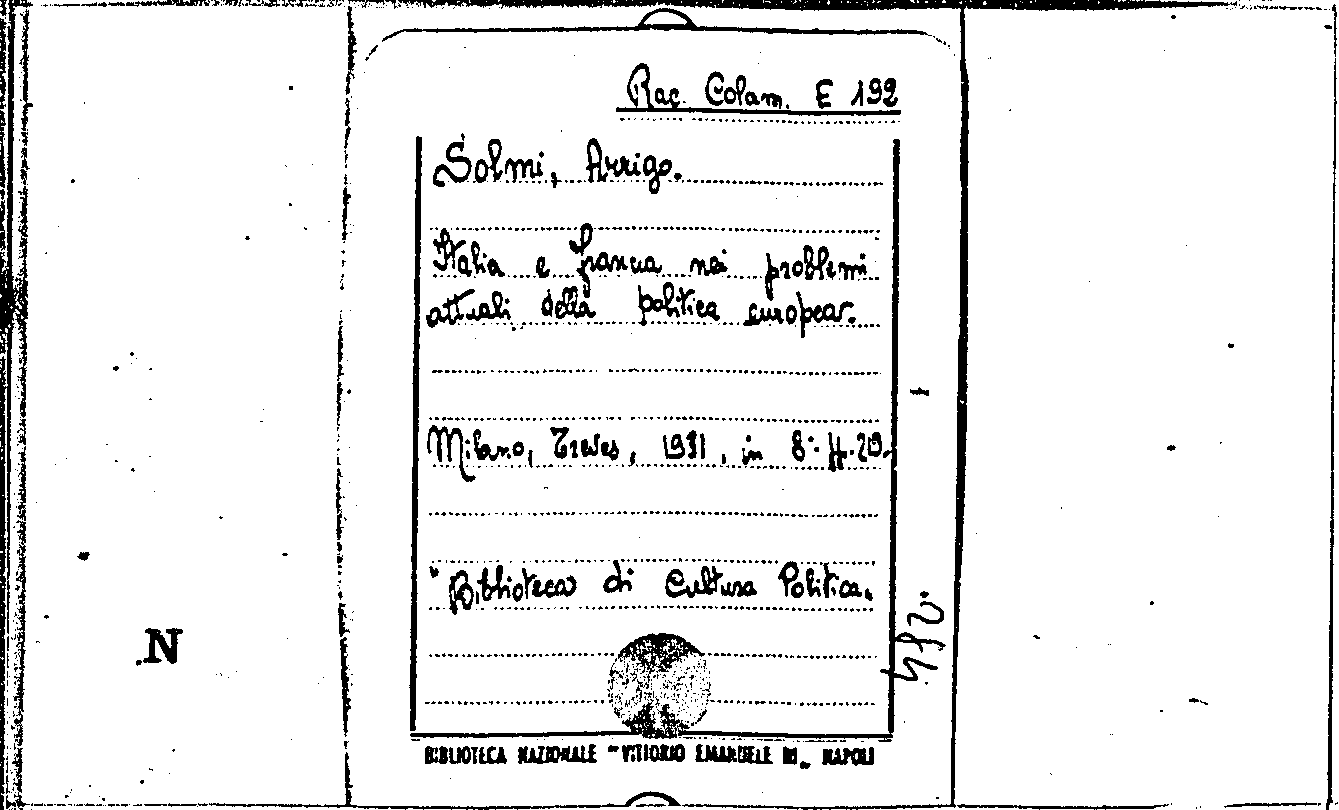 Rac. Colam. E 192
Solmi, Arrigo.
Italia e Francia nei problemi
attuali della politica europea.
Milano, Treves, 1931, in 8°.
"Biblioteca di Cultura Politica.
N
BIBLIOTECA NAZIONALE "VITTORIO EMANUELE III" NAPOLI